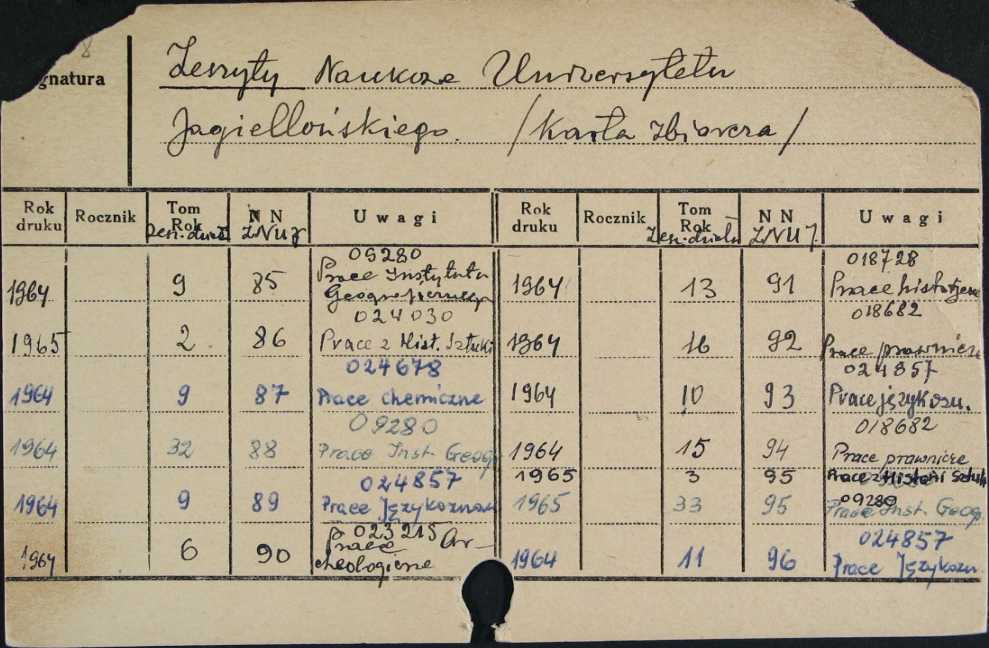 8
gnatura
Zeszyty Naukowe Uniwersytetu
Jagiellońskiego. /Karta zbiorcza/
Rok druku Rocznik Tom Rok Zesz.działu N N ZNUJ Uwagi Rok druku Rocznik Tom Rok Zesz.działu N N ZNUJ Uwagi
1964 9 85 09280 Prace Instytutu Geograficznego
1965 2 86 024030 Prace z Hist. Sztuki
1964 9 87 024678 Prace chemiczne
1964 32 88 09280 Prace Inst. Geogr
1964 9 89 024857 Prace Językoznaw
1964 6 90 023215 Prace Archeologiczne
1964 13 91 018728 Prace history
1964 16 92 018682 Prace prawnicze
1964 10 93 024857 Prace językozn.
1964 15 94 018682 Prace prawnicze
1965 3 95 Prace z Historii Sztuki
1965 33 95 09280 Prace Inst. Geog.
1964 11 96 024857 Prace Językozn